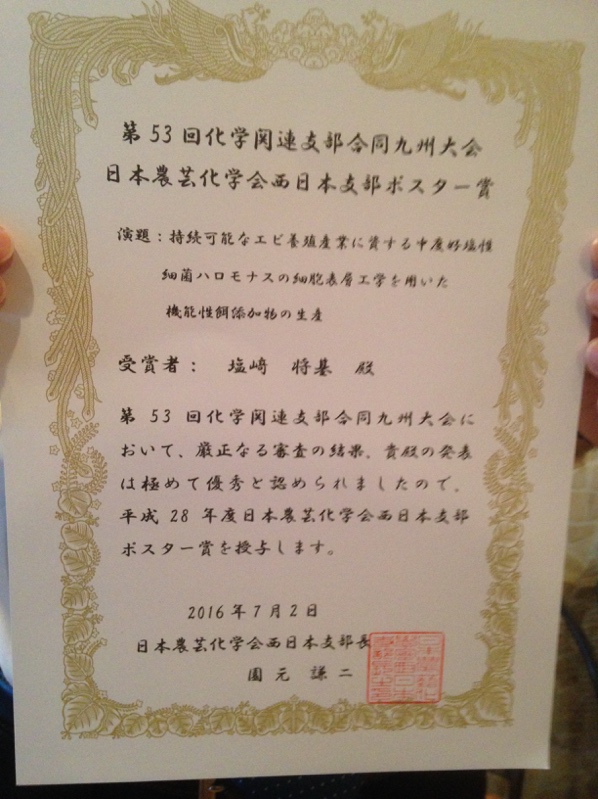 第 53 回化学関連支部合同九州大会
日本農芸化学会西日本支部ポスター賞
演題：持続可能なエビ養殖産業に資する中度好塩性
細菌ハロモナスの細胞表層工学を用いた
機能性餌添加物の生産
受賞者： 塩﨑 将基 殿
第 53 回化学関連支部合同九州大会に
おいて、厳正なる審査の結果、貴殿の発表
は極めて優秀と認められましたので、
平成 28 年度日本農芸化学会西日本支部
ポスター賞を授与します。
2016 年 7 月 2 日
日本農芸化学会西日本支部長
園元 謙二